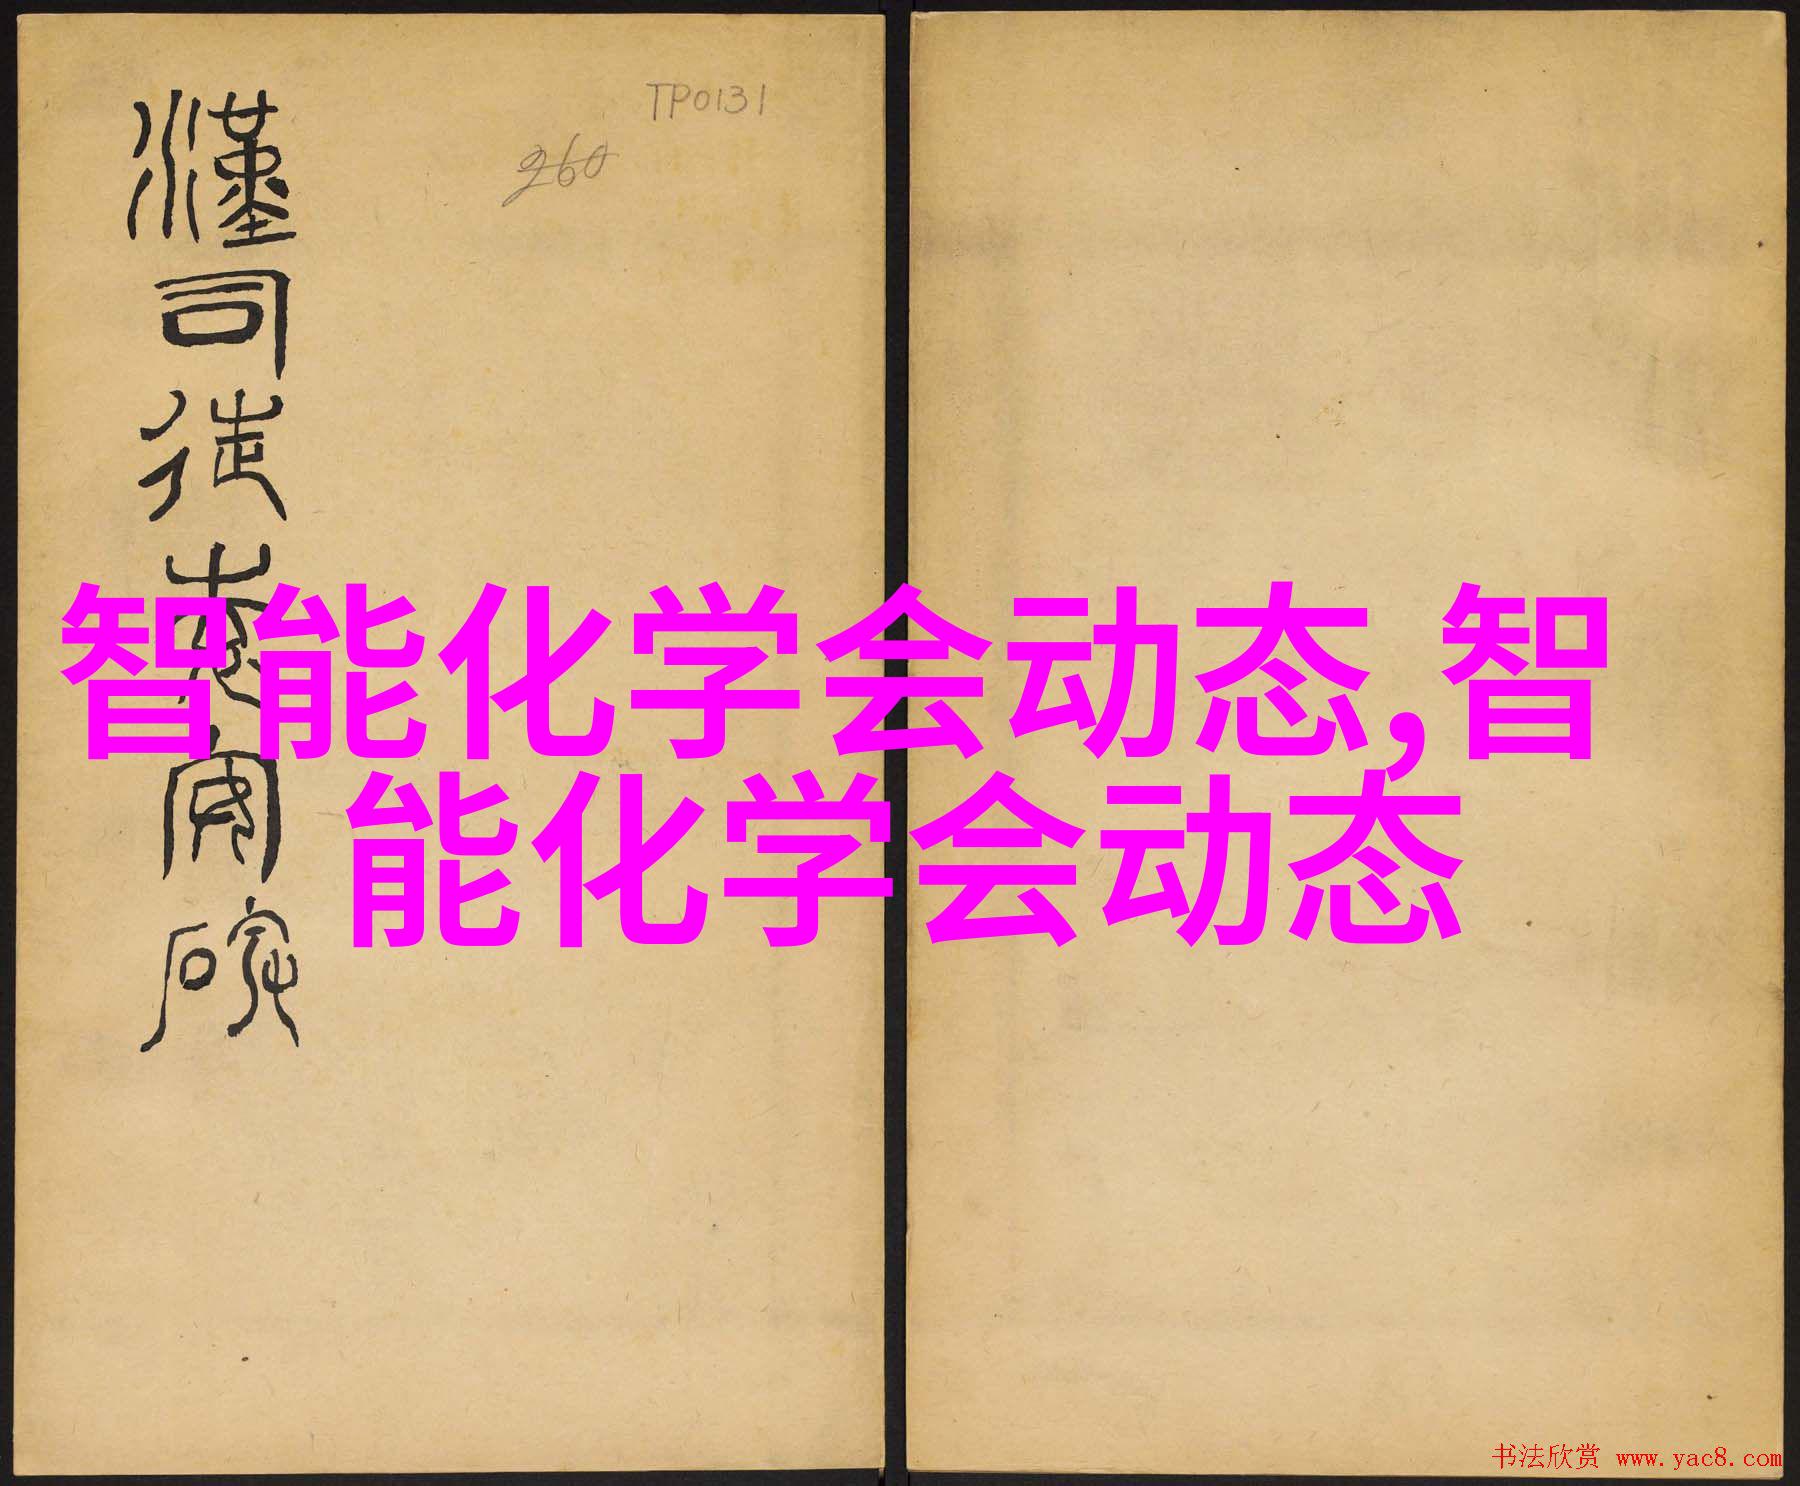 漢司徒袁安碑
TP0131
260
智能化学会动态,智
能化学会动态
书法欣赏 www.yac8.com